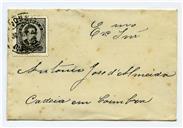 Exmo Snr
Antonio José d'Almeida
Cadeia em Coimbra